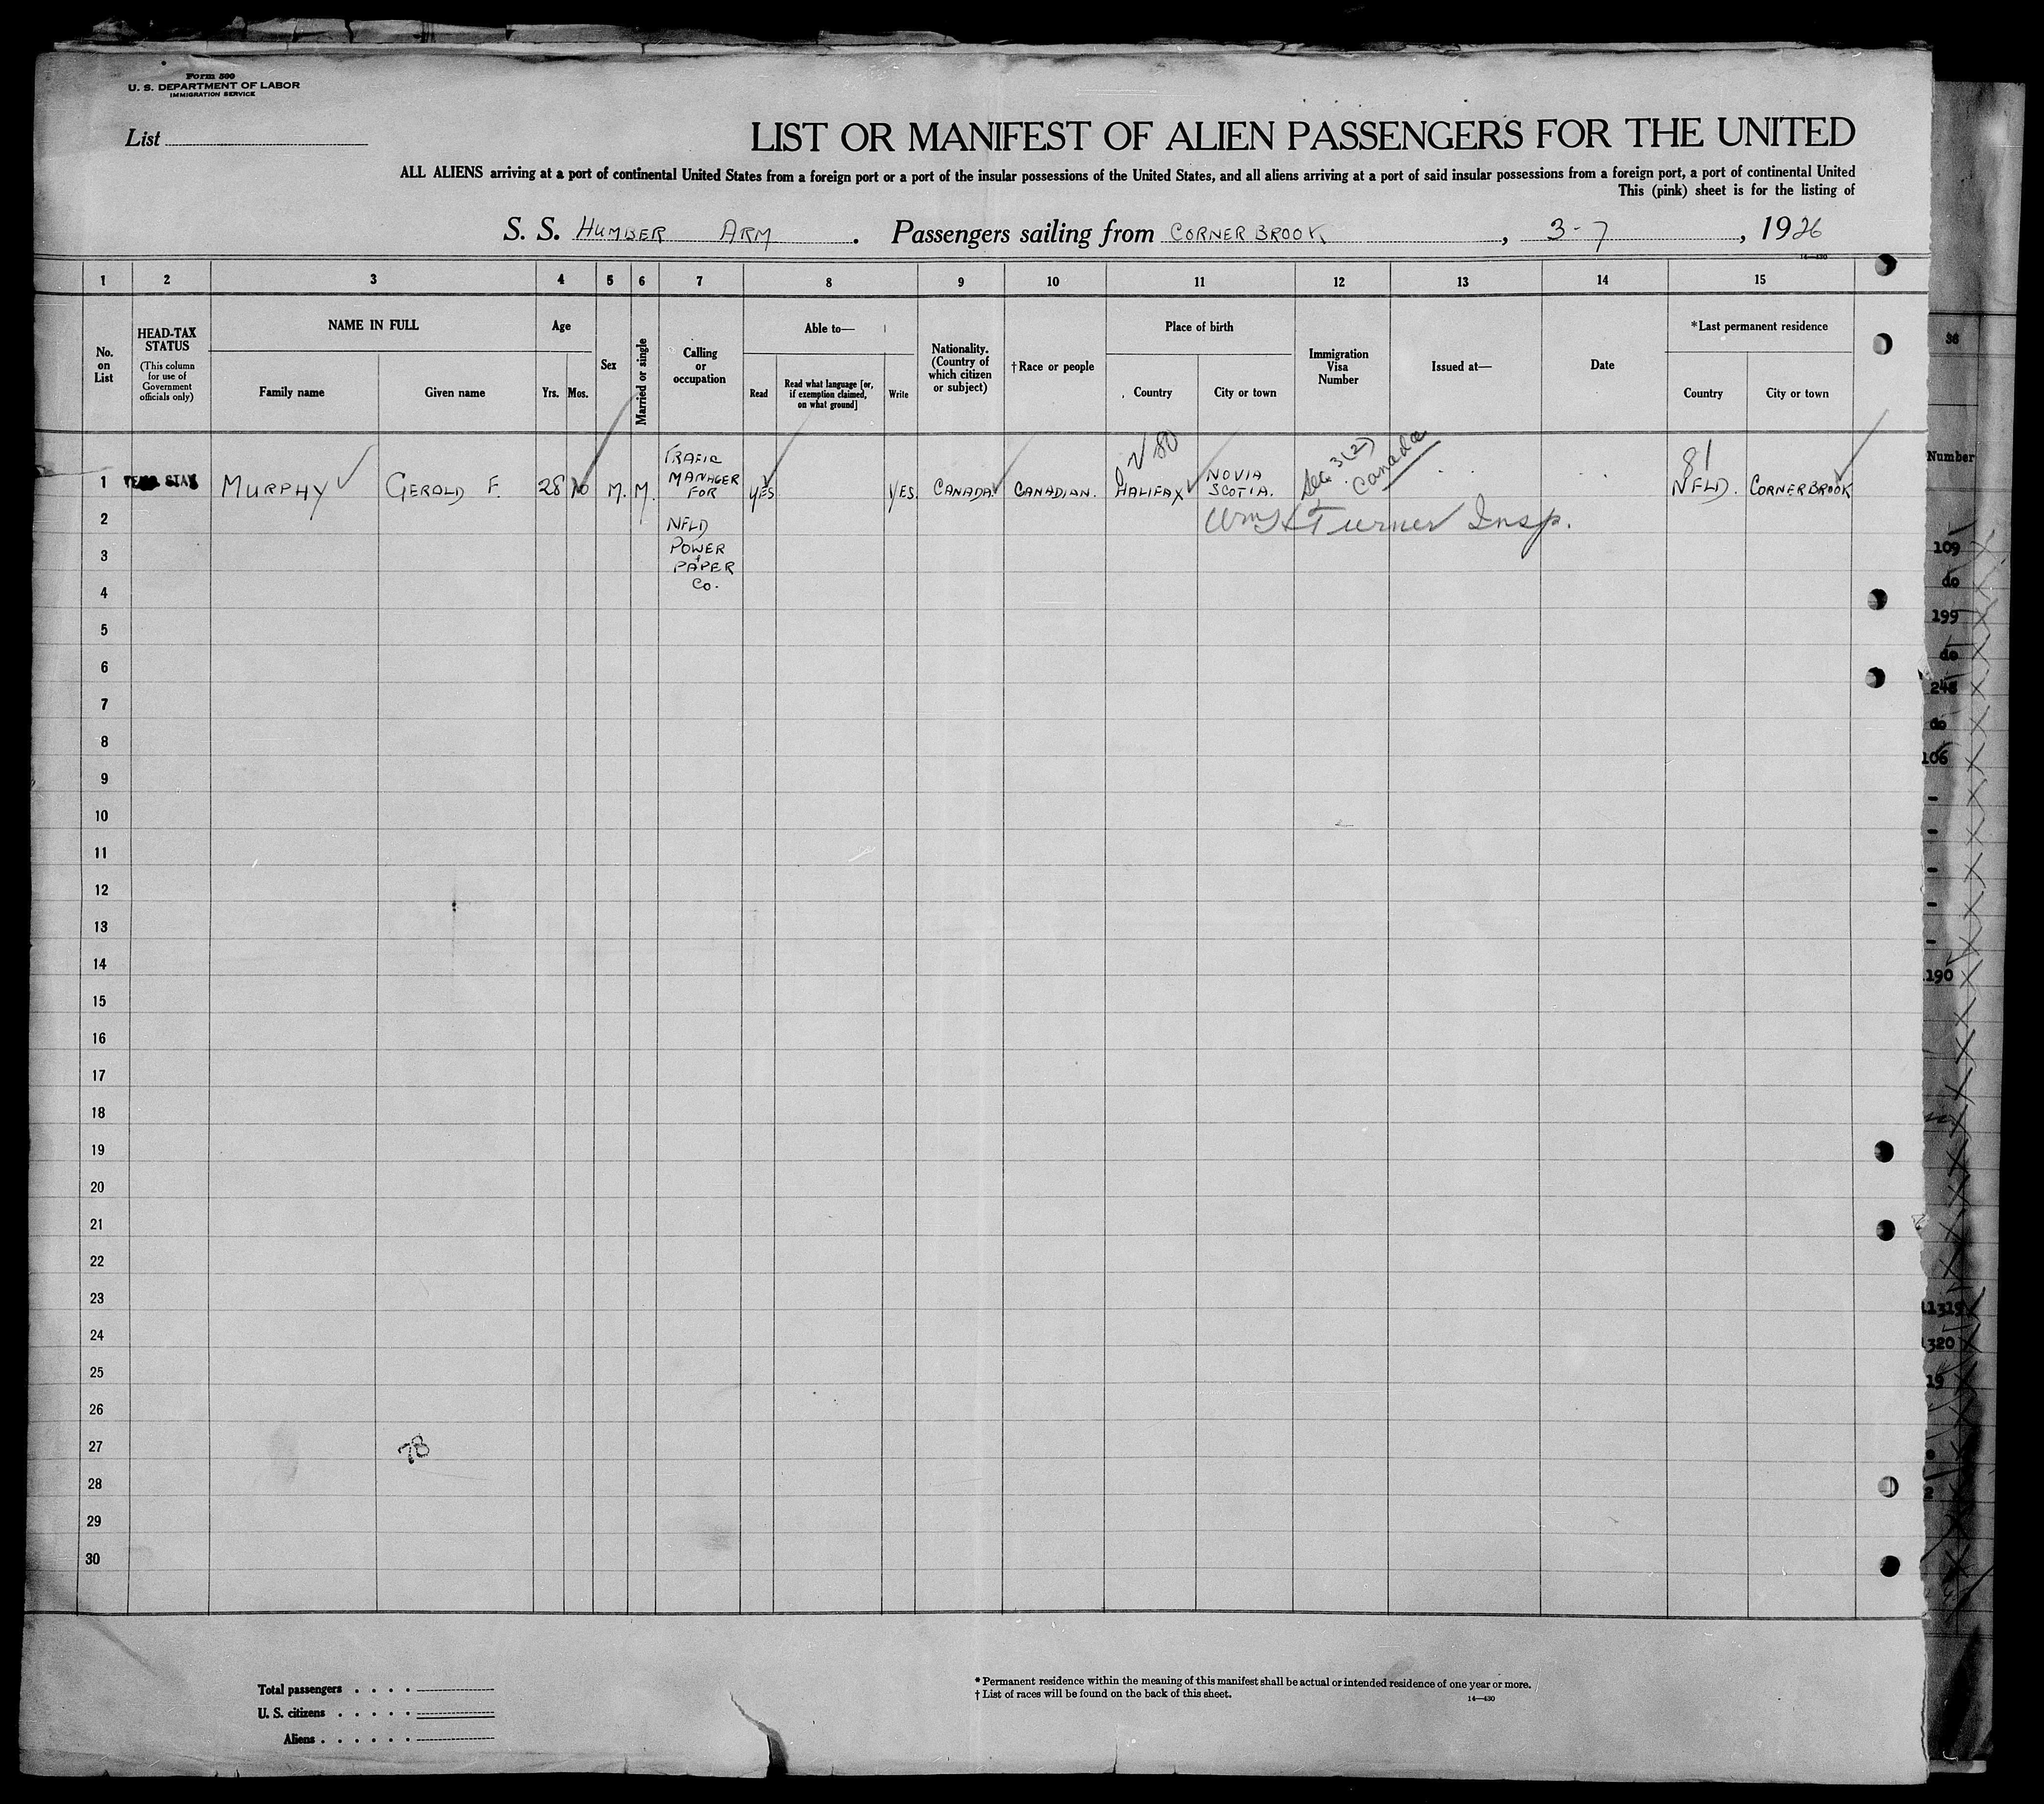 Form 500
U. S. DEPARTMENT OF LABOR
IMMIGRATION SERVICE
List
LIST OR MANIFEST OF ALIEN PASSENGERS FOR THE UNITED
ALL ALIENS arriving at a port of continental United States from a foreign port or a port of the insular possessions of the United States, and all aliens arriving at a port of said insular possessions from a foreign port, a port of continental United
This (pink) sheet is for the listing of
S. S. HUMBER ARM . Passengers sailing from CORNER BROOK , 3-7 , 1926
14—430
1 2 3 4 5 6 7 8 9 10 11 12 13 14 15
No. on List
HEAD-TAX STATUS
(This column for use of Government officials only)
NAME IN FULL
Family name
Given name
Age
Yrs. Mos.
Sex
Married or single
Calling or occupation
Able to—
Read
Read what language [or, if exemption claimed, on what ground]
Write
Nationality. (Country of which citizen or subject)
†Race or people
Place of birth
Country
City or town
Immigration Visa Number
Issued at—
Date
*Last permanent residence
Country
City or town
36
Number
1 TEMP. STAY MURPHY GEROLD F. 28 M. M. TRAFIC MANAGER FOR NFLD POWER & PAPER Co. YES YES CANADA. CANADIAN. HALIFAX NOVIA SCOTIA. NFLD. CORNER BROOK
80
Sec 3(2)
Canada
81
Turner Insp.
2
3
4
5
6
7
8
9
10
11
12
13
14
15
16
17
18
19
20
21
22
23
24
25
26
27
28
29
30
78
109
do
199
do
248
do
106
190
11319
1320
19
2
Total passengers
U. S. citizens
Aliens
* Permanent residence within the meaning of this manifest shall be actual or intended residence of one year or more.
† List of races will be found on the back of this sheet.
14—430